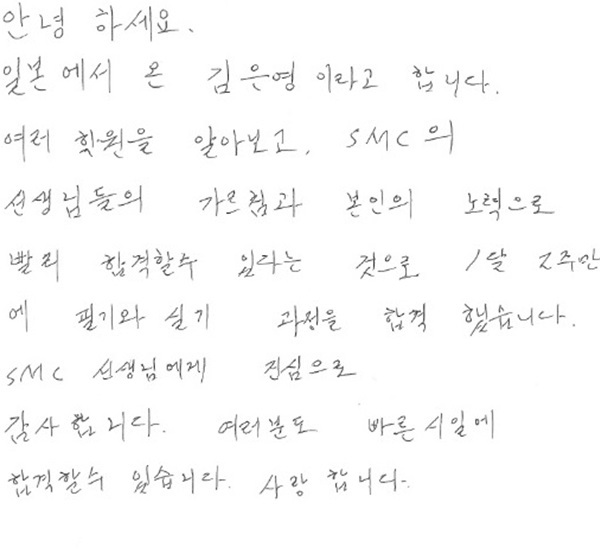 안녕 하세요.
일본에서 온 김은영 이라고 합니다.
여러 학원을 알아보고, SMC의
선생님들의 가르침과 본인의 노력으로
빨리 합격할수 있다는 것으로 1달 2주만
에 필기와 실기 과정을 합격 했습니다.
SMC 선생님에게 진심으로
감사 합니다. 여러분도 빠른 시일에
합격할수 있습니다. 사랑 합니다.